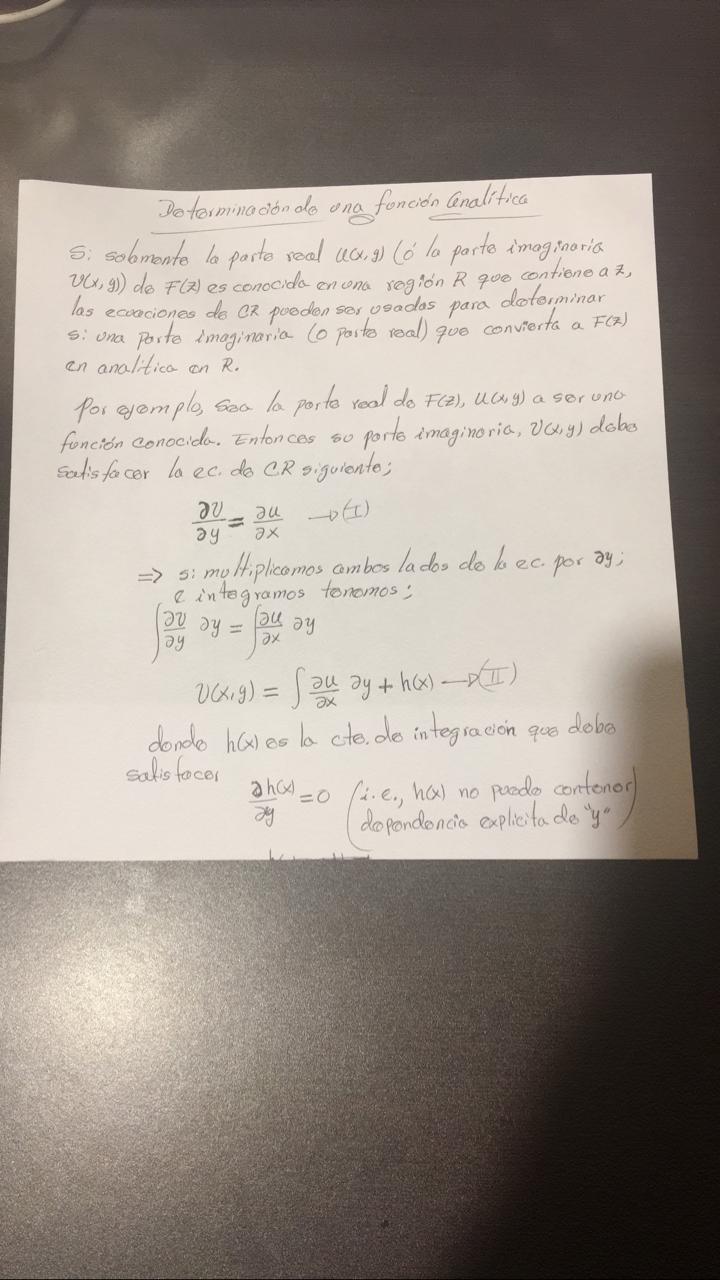 Determinación de una función analítica
Si solamente la parte real u(x,y) (ó la parte imaginaria
v(x,y)) de F(z) es conocida en una región R que contiene a z,
las ecuaciones de CR pueden ser usadas para determinar
si una parte imaginaria (o parte real) que convierta a F(z)
en analítica en R.
Por ejemplo, sea la parte real de F(z), u(x,y) a ser una
función conocida. Entonces su parte imaginaria, v(x,y) debe
satisfacer la ec. de CR siguiente;
∂v/∂y = ∂u/∂x → (I)
⇒ si multiplicamos ambos lados de la ec. por ∂y;
e integramos tenemos;
∫ ∂v/∂y ∂y = ∫ ∂u/∂x ∂y
v(x,y) = ∫ ∂u/∂x ∂y + h(x) → (II)
donde h(x) es la cte. de integración que debe
satisfacer
∂h(x)/∂y = 0 (i.e., h(x) no puede contener
dependencia explicita de "y")